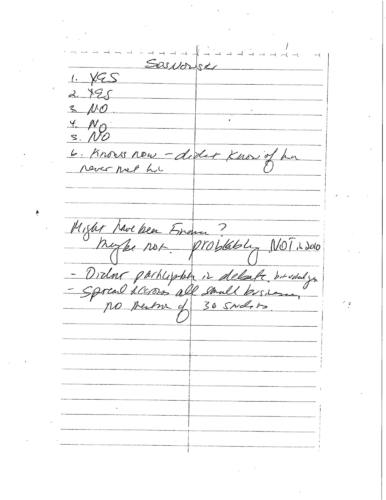 1. YES
2. YES
3 NO
4. NO
5. NO
6. Knows now - didnt know of her
never met her
Might have been ?
maybe not. probbably NOT in 2010
- Didnt participate in debate,
- Spread across all small business,
no mention of 30